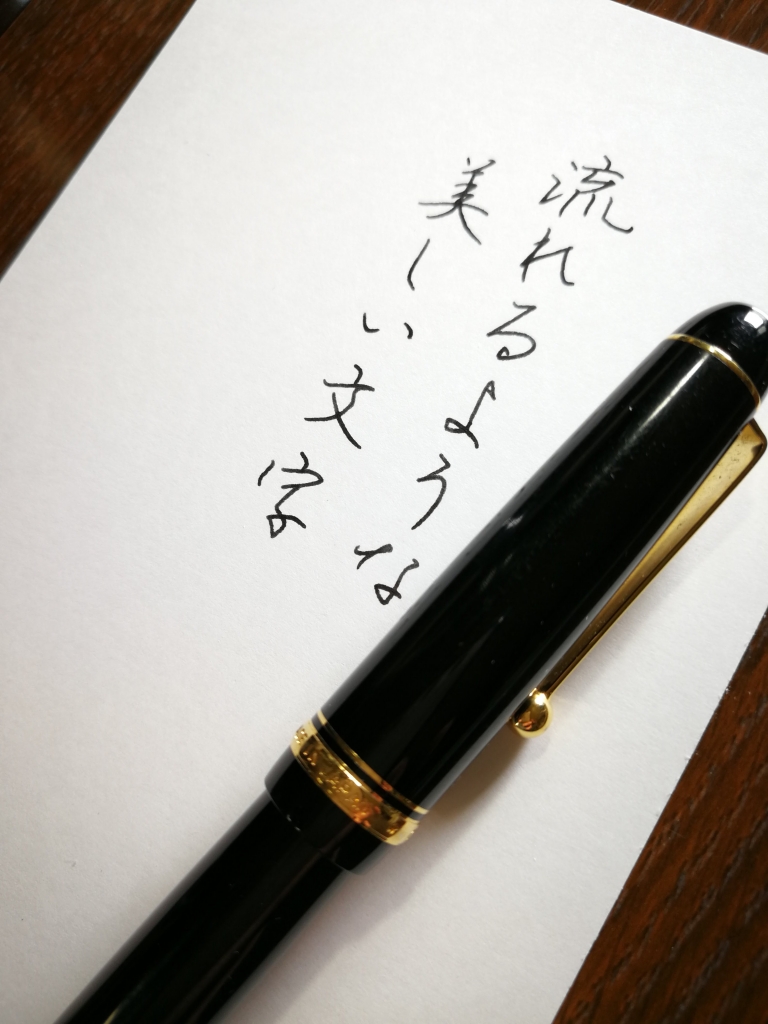 流れるような
美しい文字